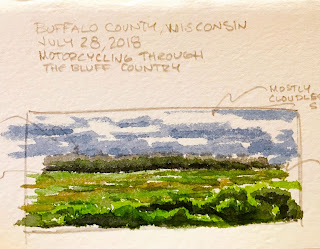 BUFFALO COUNTY, WISCONSIN
JULY 28, 2018
MOTORCYCLING THROUGH
THE BLUFF COUNTRY
MOSTLY